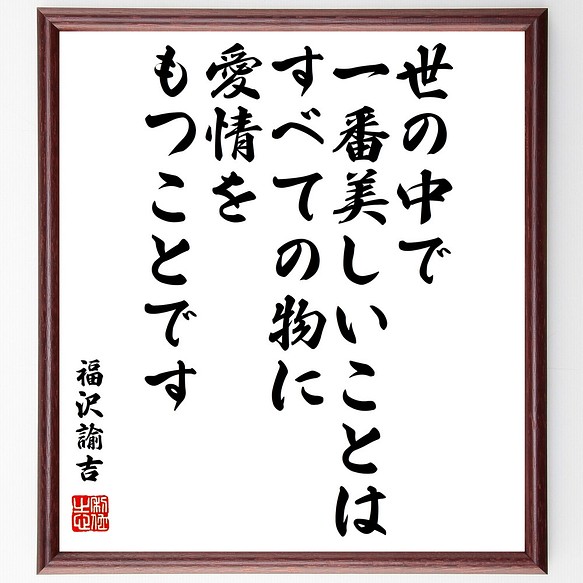 世の中で
一番美しいことは
すべての物に
愛情を
もつことです
福沢諭吉